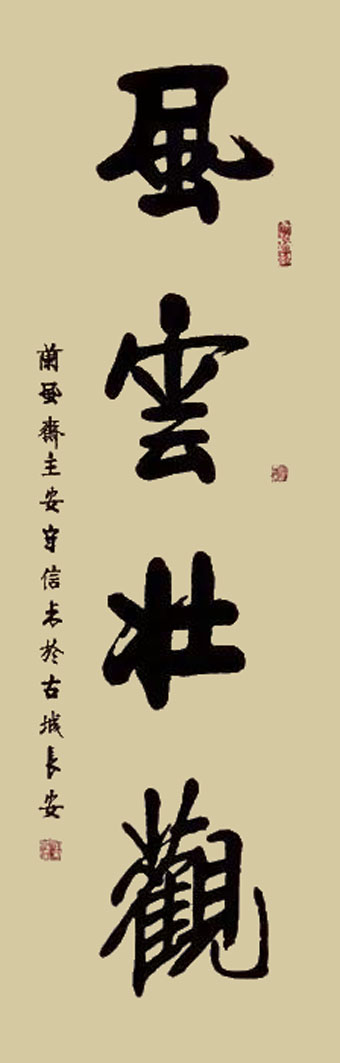 風雲壯觀
蘭風齋主安守信书於古城長安